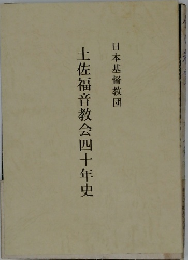 日本基督教団
土佐福音教会四十年史